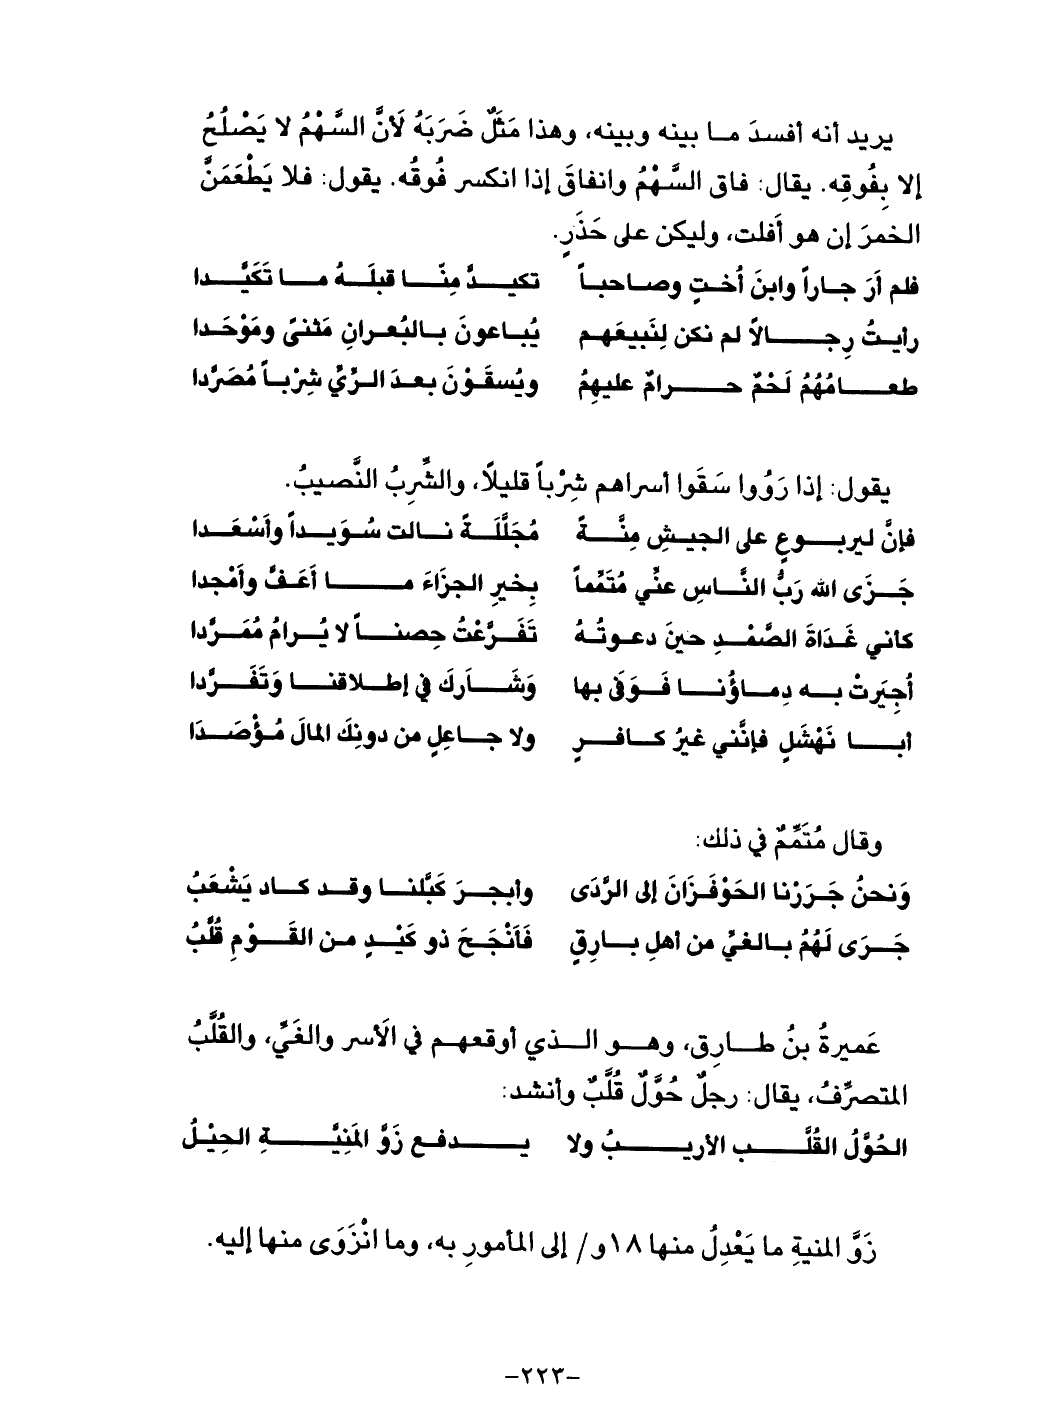 يريد أنه أفسدَ ما بينه وبينه، وهذا مَثَلٌ ضَرَبَهُ لَأنَّ السَّهْمُ لا يَصْلُحُ
إلا بِفُوقِه. يقال: فاق السَّهْمُ وانفاقَ إذا انكسر فُوقُه. يقول: فلا يَطْعَمَنَّ
الخمرَ إن هو أَفلت، وليكن على حَذَرٍ.
فلم أرَ جاراً وابنَ أُختٍ وصاحباً تكيدَّ مِنّا قبلَهُ ما تَكَيَّدا
رأيتُ رِجالاً لم نكن لِنَبيعَهم يُباعونَ بالبُعرانِ مَثنىً ومَوْحَدا
طعامُهُمُ لَحْمٌ حرامٌ عليهِمُ ويُسقَوْنَ بعدَ الرِّيِّ شِرْباً مُصَرَّدا
يقول: إذا رَوُوا سَقَوا أسراهم شِرْباً قليلًا، والشِّربُ النَّصيبُ.
فإنَّ ليربوعٍ على الجيشِ مِنَّةً مُجَلَّلَةً نالت سُوَيداً وأَسْعَدا
جَزَى الله رَبُّ النَّاسِ عنِّي مُتَمِّماً بِخيرِ الجزَاءَ ما أَعَفَّ وأَمْجدا
كاني غَدَاةَ الصَّمْدِ حينَ دعوتُهُ تَفَرَّعْتُ حِصناً لا يُرامُ مُمَرَّدا
أُجِيَرتْ به دِماؤُنا فَوَفَى بها وَشَارَكَ في إطلاقنا وَتَفَرَّدا
أبا نَهْشَلٍ فإنَّني غيرُ كافرٍ ولا جاعِلٍ من دونِكَ المالَ مُؤْصَدَا
وقال مُتَمِّمٌ في ذلك:
وَنحنُ جَرَرْنا الحَوْفَزَانَ إلى الرَّدَى وأبجرَ كَبَّلنا وقد كاد يَشْعَبُ
جَرَى لَهُمُ بالغيِّ من أهلِ بارِقٍ فَاَنْجَحَ ذو كَيْدٍ من القَوْمِ قُلَّبُ
عَميرةُ بنُ طارِق، وهو الذي أوقعهم في الَأسر والغَيِّ، والقُلَّبُ
المتصرِّفُ، يقال: رجلٌ حُوَّلٌ قُلَّبٌ وأنشد:
الحُوَّلُ القُلَّب الأريبُ ولا يدفع زَوَّ المَنِيَّةِ الحِيْلُ
زَوَّ المنيةِ ما يَعْدِلُ منها ١٨و/ إلى المأمورِ به، وما انْزَوَى منها إليه.
-٢٢٣-